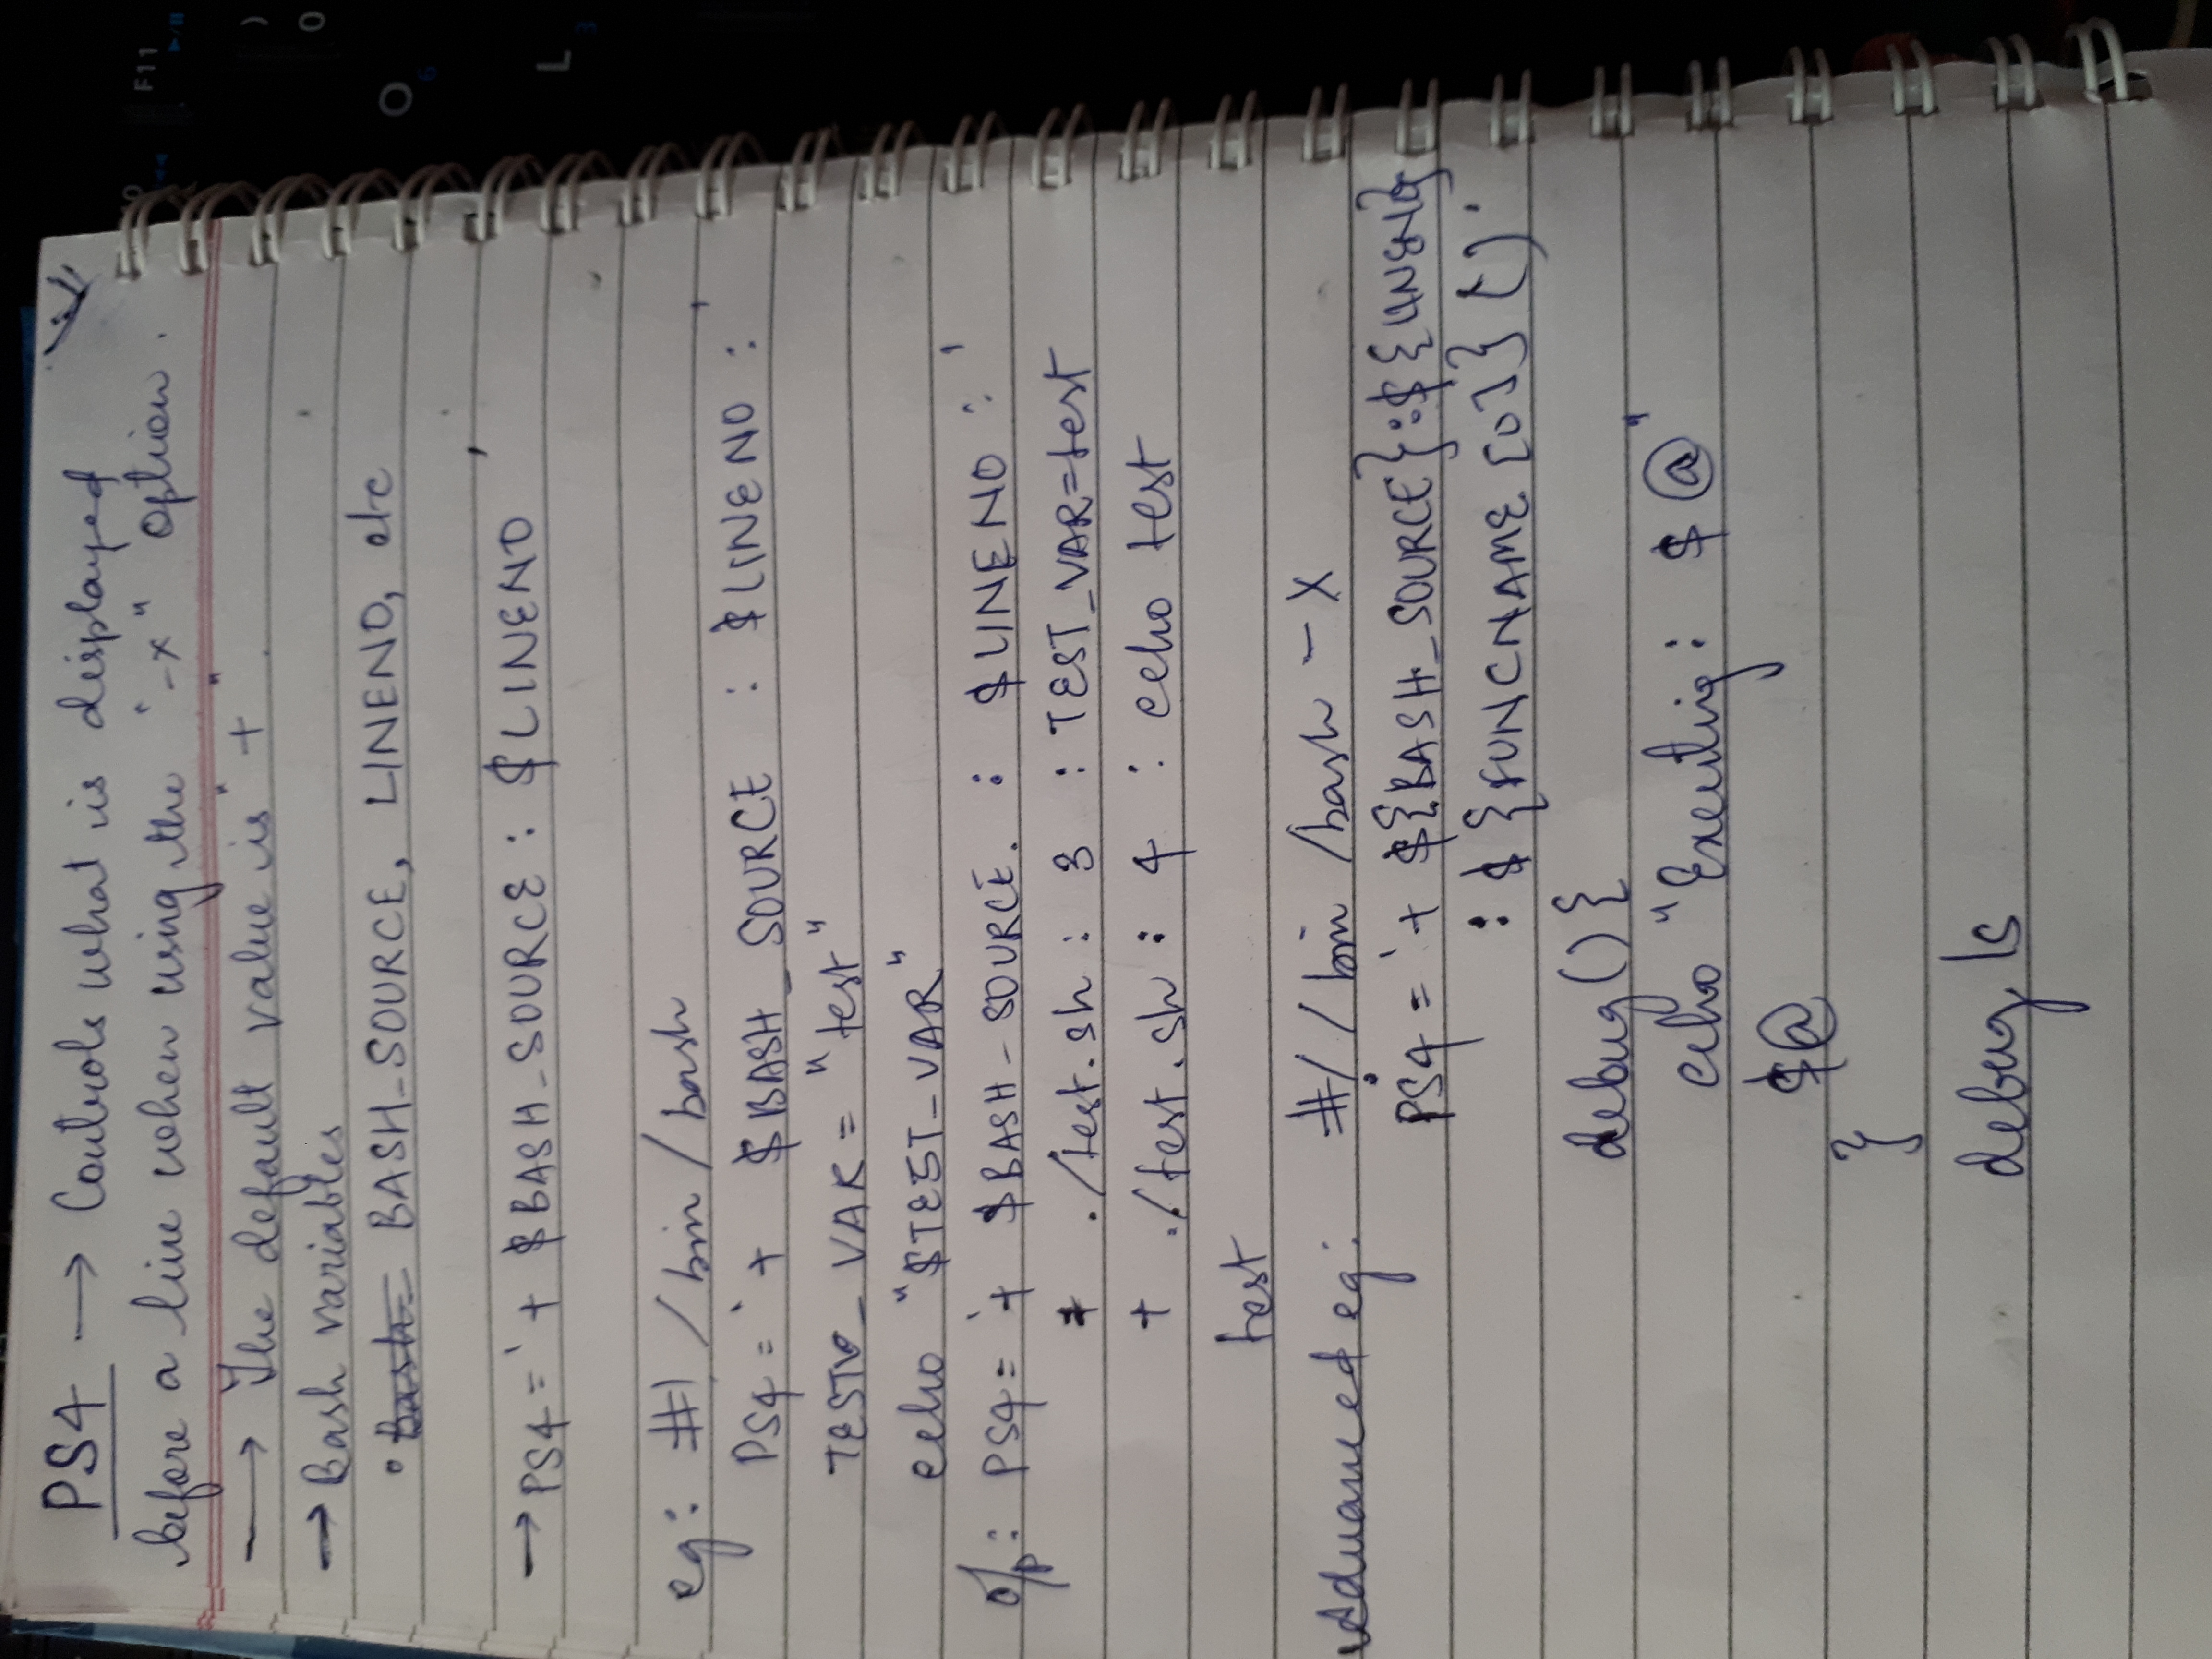 PS4 → Controls what is displayed
before a line when using the "-x" option.
→ The default value is "+".
→ Bash variables
• BASH_SOURCE, LINENO, etc
→ PS4 = '+ $BASH_SOURCE : $LINENO '
eg: #! /bin/bash
PS4 = '+ $BASH_SOURCE : $LINENO : '
TEST_VAR = "test"
echo "$TEST_VAR"
o/p: PS4 = '+ $BASH_SOURCE. : $LINENO : '
+ ./test.sh : 3 : TEST_VAR=test
+ ./test.sh : 4 : echo test
test
Advanced eg: #! /bin /bash -x
PS4 = '+ ${BASH_SOURCE}:${LINENO}
: ${FUNCNAME [0]} ()'
debug(){
echo "Executing: $@"
$@
}
debug ls
F11
)
0
O
6
L
3